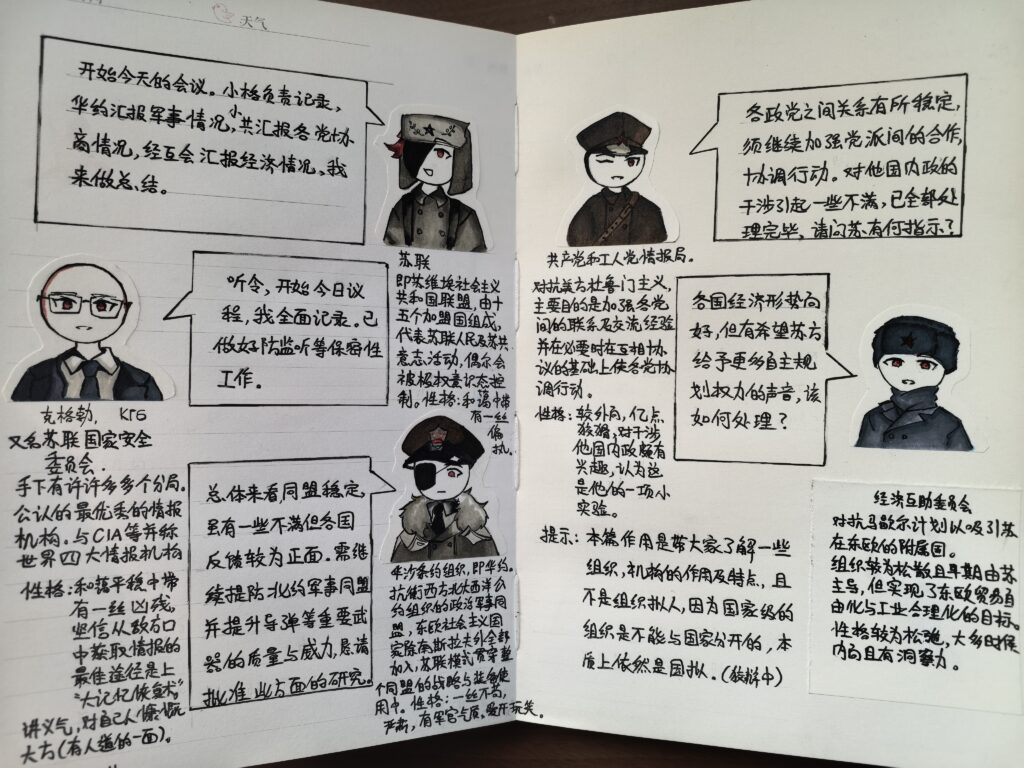 天气
开始今天的会议。小格负责记录,
华约汇报军事情况,小共汇报各党协
商情况,经互会汇报经济情况,我
来做总结。
苏联
即苏维埃社会主义
共和国联盟,由十
五个加盟国组成,
代表苏联人民及苏共
意志活动,偶尔会
被极权意识态控
制。性格:和蔼中带
有一丝
偏
执。
听令,开始今日议
程,我全面记录。已
做好防监听等保密性
工作。
克格勃, KГБ
又名苏联国家安全
委员会.
手下有许许多多个分局。
公认的最优秀的情报
机构。与CIA等并称
世界四大情报机构
性格:和蔼平稳中带
有一丝凶残。
坚信从敌方口
中获取情报的
最佳途径是上
"大记忆恢复术"
讲义气,对自己人慷慨
大方(有人道的一面)。
总体来看同盟稳定,
虽有一些不满但各国
反馈较为正面。需继
续提防北约军事同盟
并提升导弹等重要武
器的质量与威力,恳请
批准此方面的研究。
华沙条约组织,即华约。
抗衡西方北大西洋公
约组织的政治军事同
盟,东欧社会主义国
家除南斯拉夫外全部
加入,苏联模式贯穿整
个同盟的战略与装备使
用中。性格:一丝不苟,
严肃,有军官气质。爱开玩笑。
各政党之间关系有所稳定,
须继续加强党派间的合作,
协调行动。对他国内政的
干涉引起一些不满,已全部处
理完毕,请问苏有何指示?
共产党和工人党情报局。
对抗美方杜鲁门主义,
主要目的是加强各党
间的联系及交流经验
并在必要时在互相协
议的基础上使各党协
调行动。
性格:较外向,亿点
狡猾,对干涉
他国内政颇有
兴趣,认为这
是他的一项小
实验。
各国经济形势向
好,但有希望苏方
给予更多自主规
划权力的声音,该
如何处理?
经济互助委员会
对抗马歇尔计划以吸引苏
在东欧的附属国。
组织较为松散且早期由苏
主导,但实现了东欧贸易自
由化与工业合理化的目标。
性格较为松弛,大多时候
内向且有洞察力。
提示:本篇作用是带大家了解一些
组织,机构的作用及特点,且
不是组织拟人,因为国家级的
组织是不能与国家分开的,本
质上依然是国拟。(狡辩中)